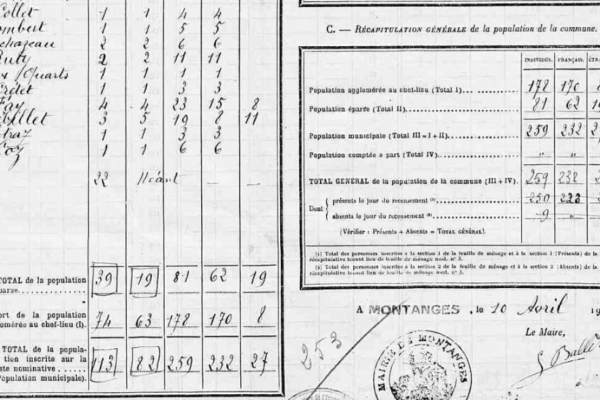 Collet 1 1 4 4
ombert 1 1 5 5
échazeau 2 2 6 6
Ruty 2 2 11 11
1 1 1 1
Crétet 1 1 3 3
Fay 4 4 23 15 8
3 5 19 8 11
1 1 3 3
Coz 1 1 6 6
22 Néant — —
TOTAL de la population 39 19 81 62 19
parse
ort de la population
omérée au chef-lieu (I). 74 63 178 170 8
TOTAL de la popula-
tion inscrite sur la 113 82 259 232 27
ste nominative
Population municipale).
C. — RÉCAPITULATION GÉNÉRALE de la population de la commune.
INDIVIDUS. FRANÇAIS. ÉTR
Population agglomérée au chef-lieu (Total I) 178 170
Population éparse (Total II) 81 62 19
Population municipale (Total III = I + II) 259 232 2
Population comptée à part (Total IV) " "
TOTAL GÉNÉRAL de la population de la commune (III + IV). 259 232 2
Dont présents le jour du recensement (1) 250 223
absents le jour du recensement (2) 9 "
(Vérifier : Présents + Absents = TOTAL GÉNÉRAL)
(1) Total des personnes inscrites à la section 1 de la feuille de ménage et à la section 1 (Présents) de la
récapitulative tenant lieu de feuille de ménage mod. n° 5.
(2) Total des personnes inscrites à la section 2 de la feuille de ménage et à la section 2 (Absents) de la
récapitulative tenant lieu de feuille de ménage mod. n° 5.
A MONTANGES, le 10 Avril 19
Le Maire,
253
MAIRIE DE MONTANGES